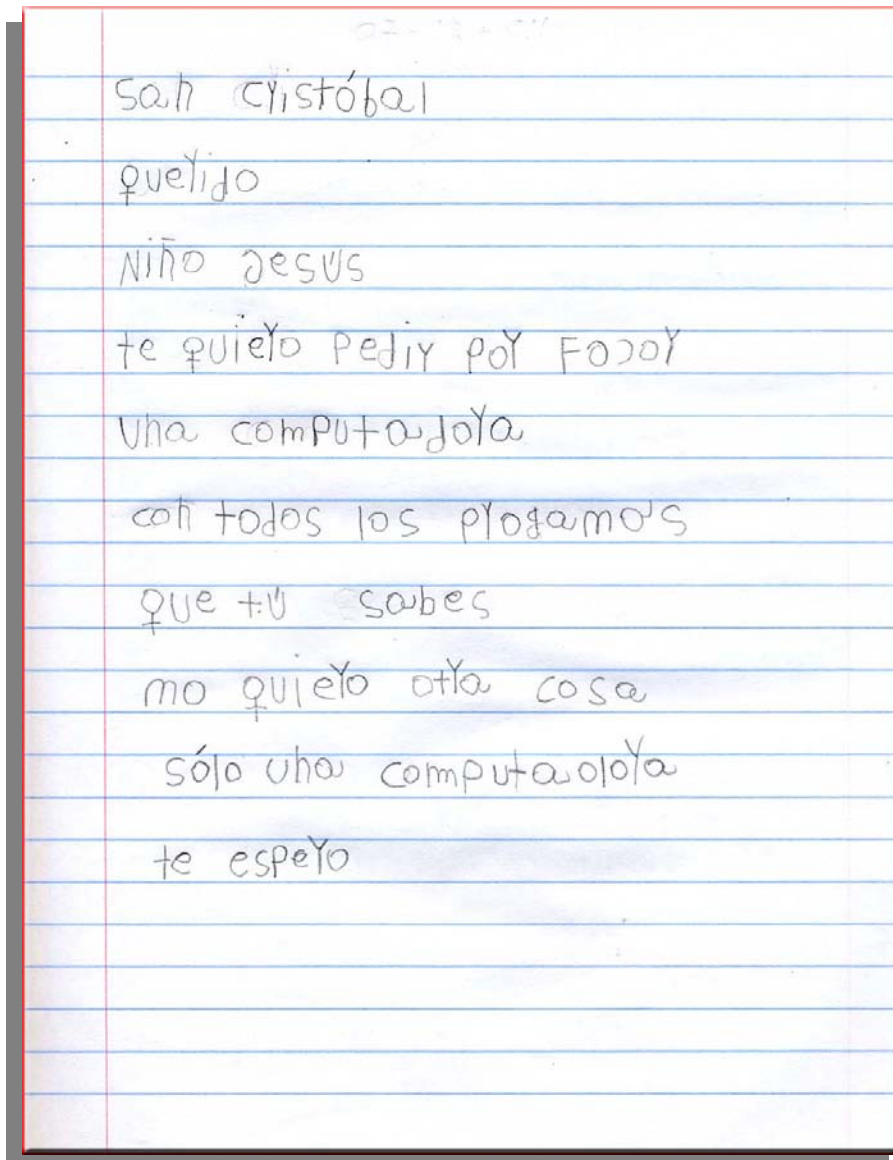 san cristóbal
querido
Niño Jesus
te quiero pedir por Facor
una computadora
con todos los progamos
que tú sabes
mo quiero otra cosa
sólo una computadora
te espero